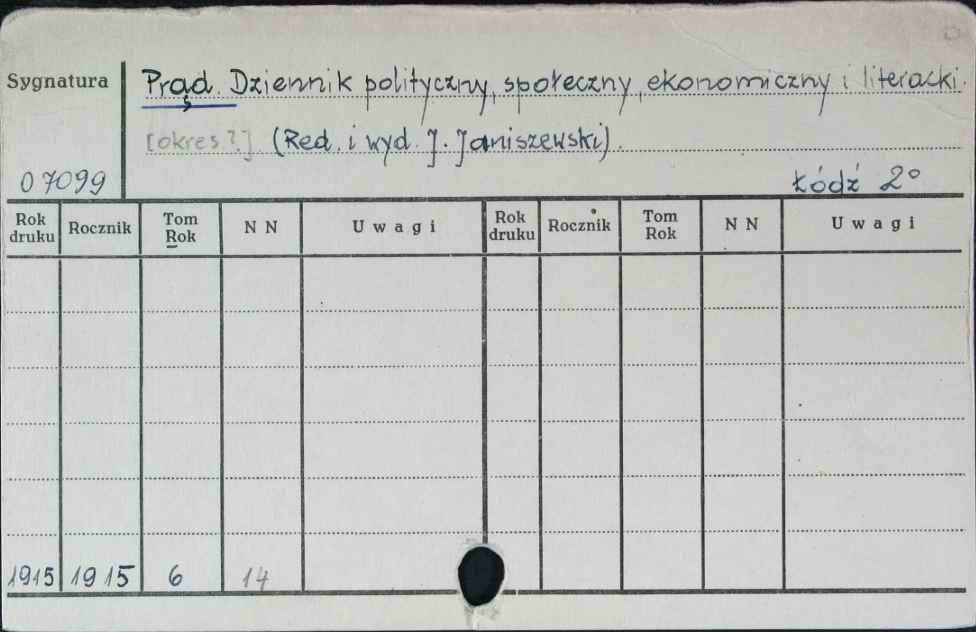 Sygnatura Prąd. Dziennik polityczny, społeczny, ekonomiczny i literacki.
[okres?] (Red. i wyd. J. Janiszewski).
07099 Łódź 2°
Rok druku Rocznik Tom Rok N N Uwagi Rok druku Rocznik Tom Rok N N Uwagi
1915 1915 6 14